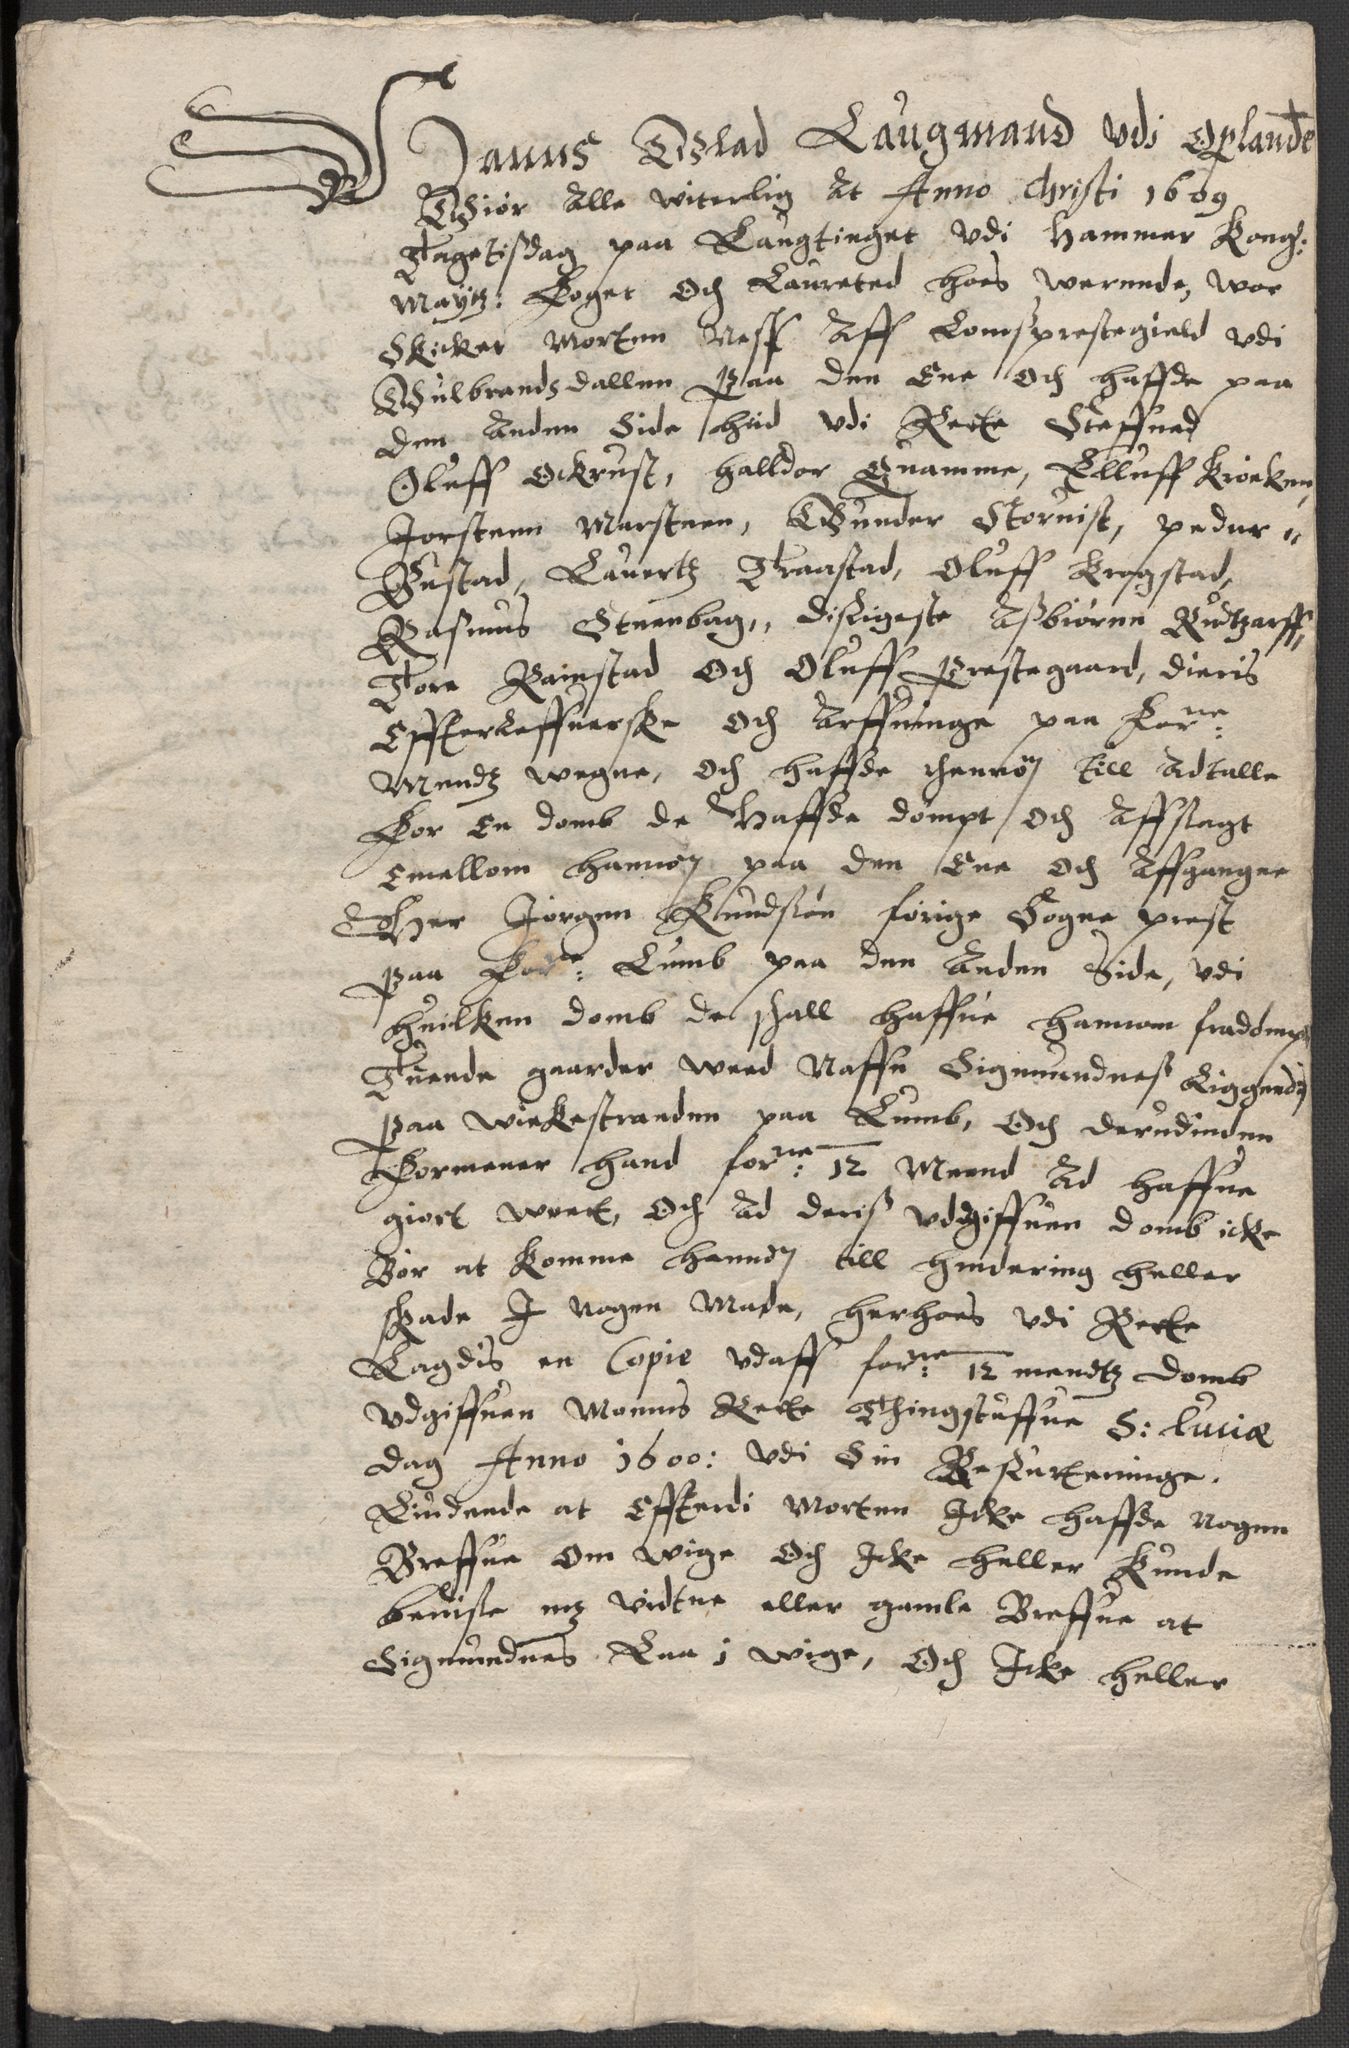 Hanns Glad Laugmand vdi Oplandt
Giör Alle witerlig At Anno Christi 1609
paa Laugtinget vdi Hammer Kong:
Maytz: Foget Och Laureted hoes werende, wor
Skicket Morten Neff Aff Lomsprestegield vdi
Gulbrandsdallen Paa den Ene Och haffde paa
den Anden Side hid vdi Rette Steffned
Oluff Ockrust, Halldor Quamme, Elluff Kröcken,
Torstenn Marstenn, Gunder Storuist, peder
Gustad, Lauertz Traastad, Oluff Krogstad,
Rasmus Stenbag,, disligeste Asbiörnn
Tore Rainstad Och Oluff Prestegaard, dieris
Effterleffuerske Och Arffuinge paa Forne:
Mendz wegne, Och haffde thennom till Adtalle
For En domb de Haffde dömpt Och Affsagt
Emellom hannom paa den Ene Och Affgangne
Her Jörgen Knudsön forige Sogne prest
paa Forne: Lumb paa den Anden Side, vdi
huilken domb de skall haffue hannom fradömpt
Tuende gaarder weed Naffn Sigmundnes Liggendes
paa Wickestranden paa Lumb, Och derudinden
Formener hand forne: 12 Mend Ad haffue
giort wrett, Och Ad deris vdgiffuen domb icke
Bör at komme hannom till hindering heller
skade I nogen Made, herhoes vdi Rette
Lagdis en Copie vdaff forne: 12 mendtz domb
vdgiffuen Monns Rette Thingstuffue S: Luciæ
dag Anno 1600: vdi Sin Beslutteninge.
Liudende at Effterdi Morten Icke haffde Nogen
Breffue Om wige Och Icke heller Kunde
beuise mz vidtne eller gamle Breffue at
Sigmundnes Laa i wige, Och Icke heller